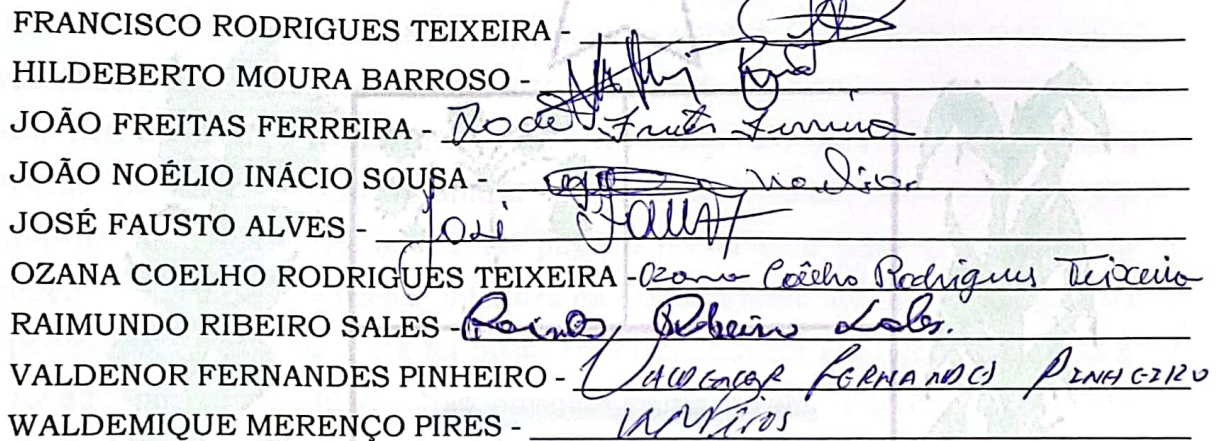 FRANCISCO RODRIGUES TEIXEIRA -
HILDEBERTO MOURA BARROSO -
JOÃO FREITAS FERREIRA -
JOÃO NOÉLIO INÁCIO SOUSA -
JOSÉ FAUSTO ALVES - José Faust
OZANA COELHO RODRIGUES TEIXEIRA - Ozana Coêlho Rodrigues Teixeira
RAIMUNDO RIBEIRO SALES - Ribeiro Sales.
VALDENOR FERNANDES PINHEIRO - FERNANDES PINHEIRO
WALDEMIQUE MERENÇO PIRES -